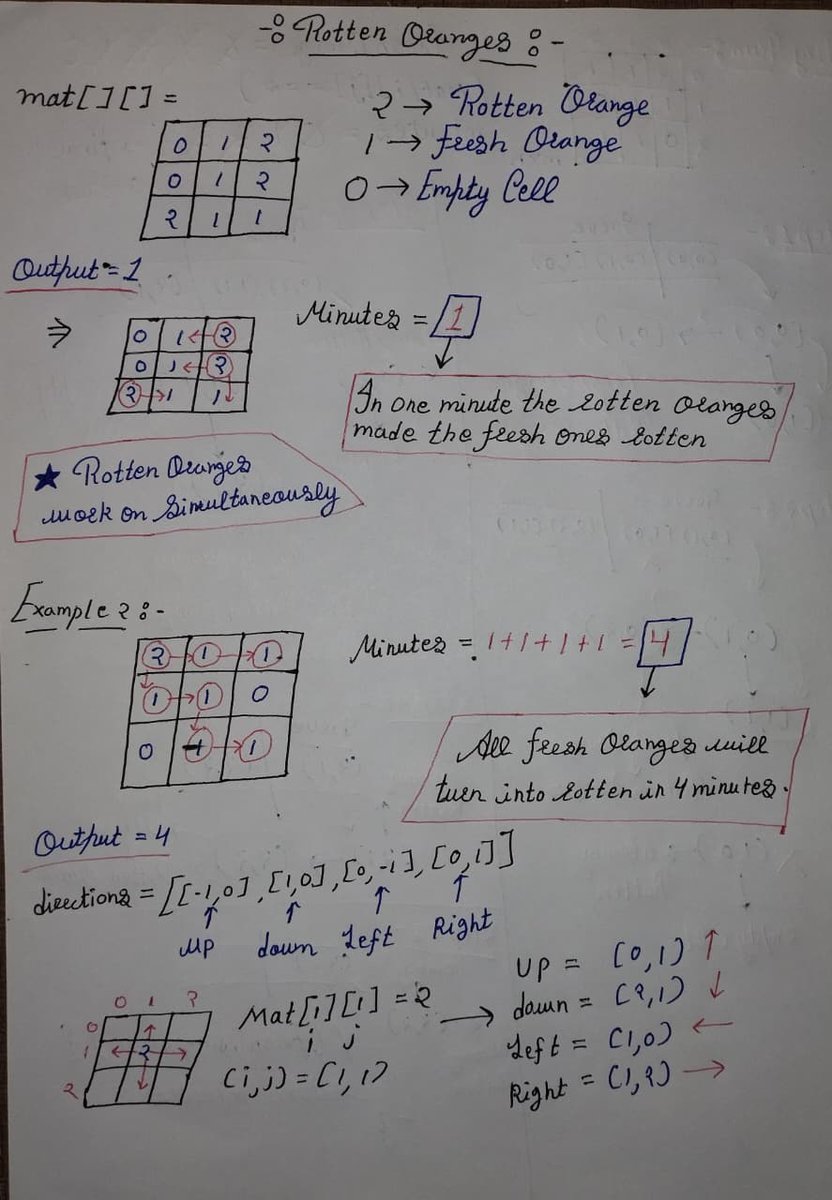 -: Rotten Oranges :-
mat[][] =
0 1 2
0 1 2
2 1 1
2 → Rotten Orange
1 → fresh Orange
0 → Empty Cell
Output = 1
⇒
0 1 ← 2
0 1 ← 2
2 → 1 1 ↓
Minutes = 1
In one minute the rotten oranges
made the fresh ones rotten
★ Rotten Oranges
work on Simultaneously
Example 2 :-
2 → 1 → 1
1 → 1 0
0 1 → 1
Minutes = 1+1+1+1 = 4
All fresh Oranges will
turn into rotten in 4 minutes.
Output = 4
directions = [[-1,0], [1,0], [0,-1], [0,1]]
↑ ↑ ↑ ↑
up down left Right
0 1 2
0 ↑
1 ← 2 →
2 ↓
Mat[1][1] = 2 →
i j
(i,j) = (1,1)
UP = (0,1) ↑
down = (2,1) ↓
Left = (1,0) ←
Right = (1,2) →